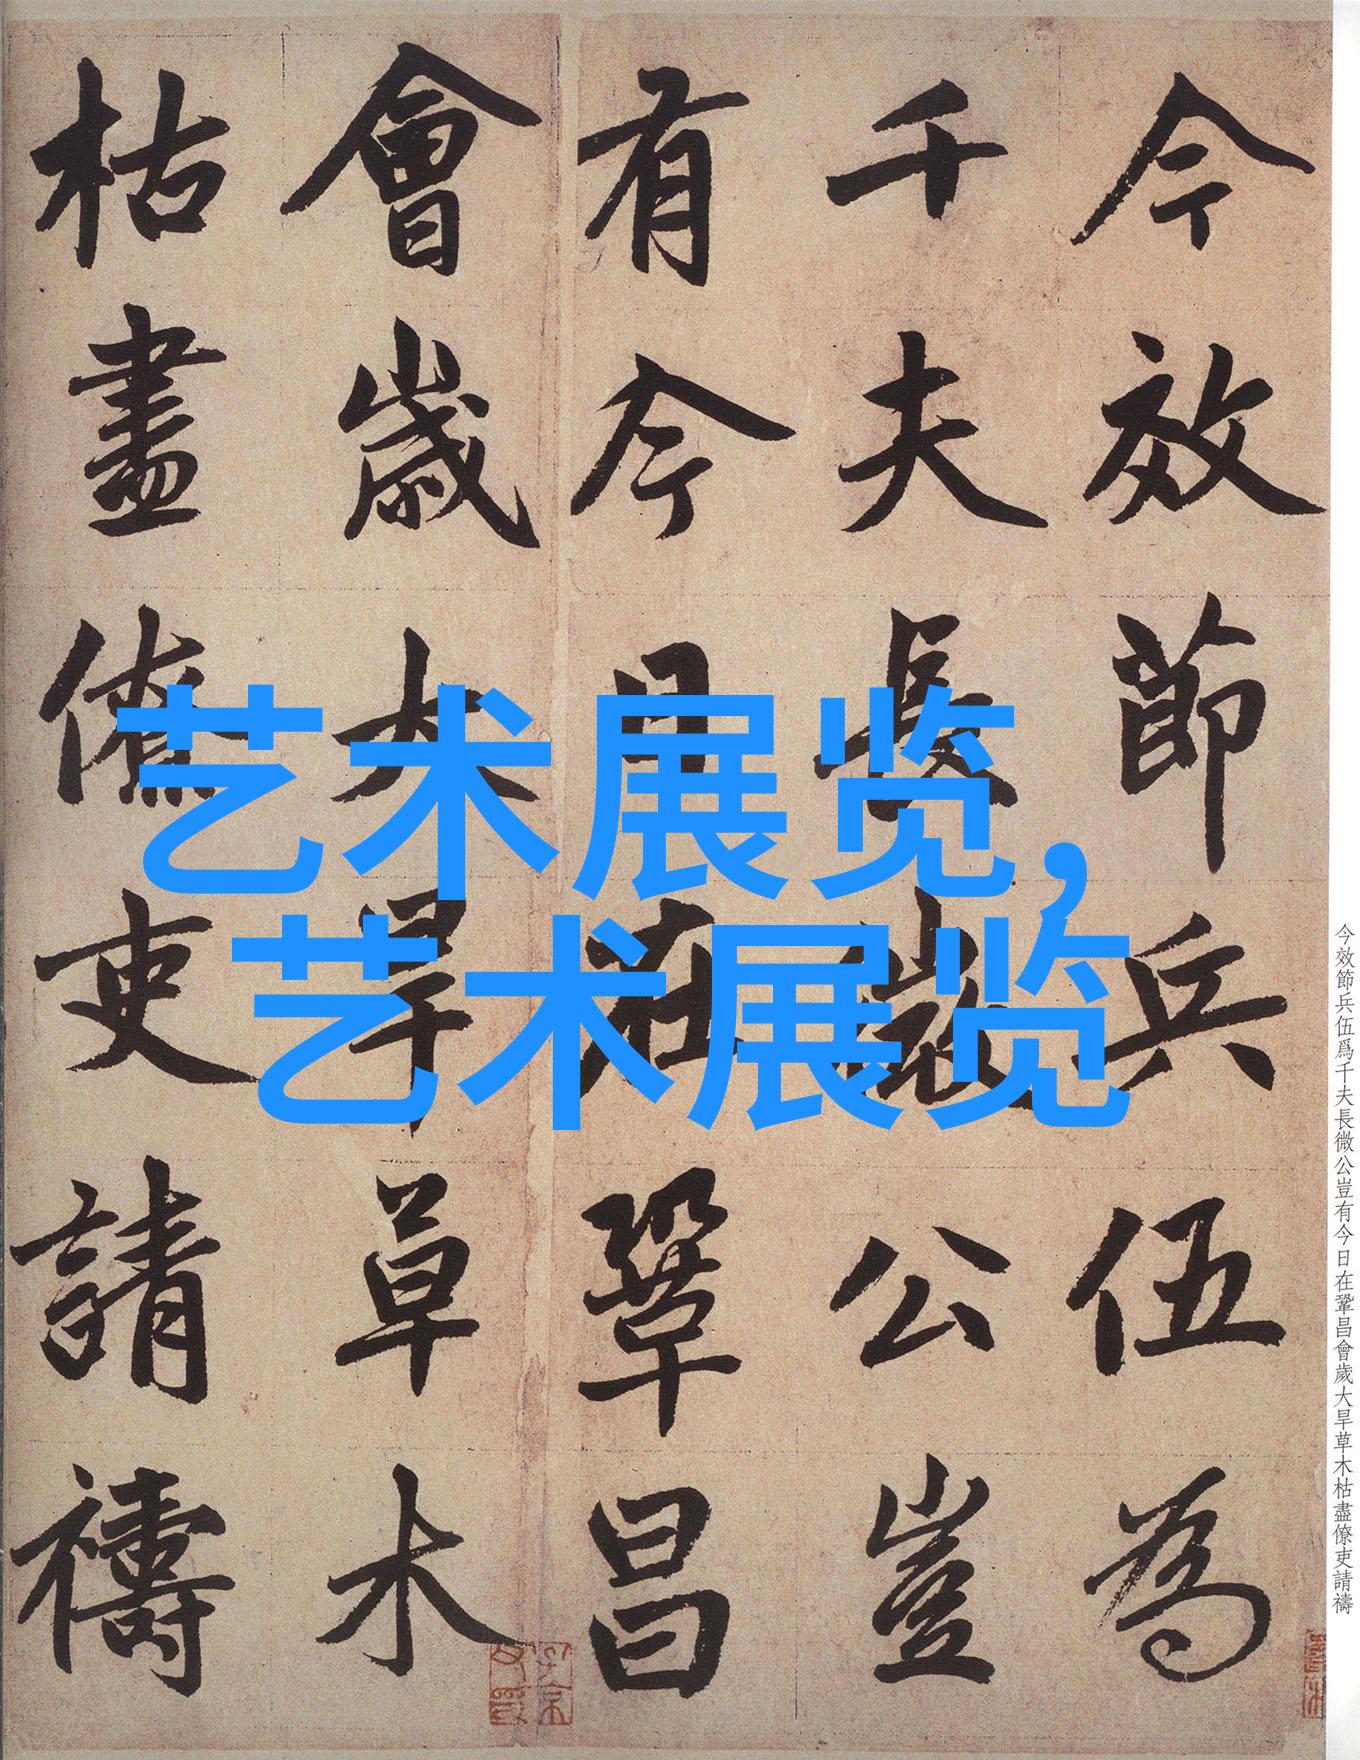 今效節兵伍為
千夫長微公豈
有今日在鞏昌
會歲大旱草木
枯盡僚吏請禱
艺术展览，
艺术展览
今效節兵伍爲千夫長微公豈有今日在鞏昌會歲大旱草木枯盡僚吏請禱